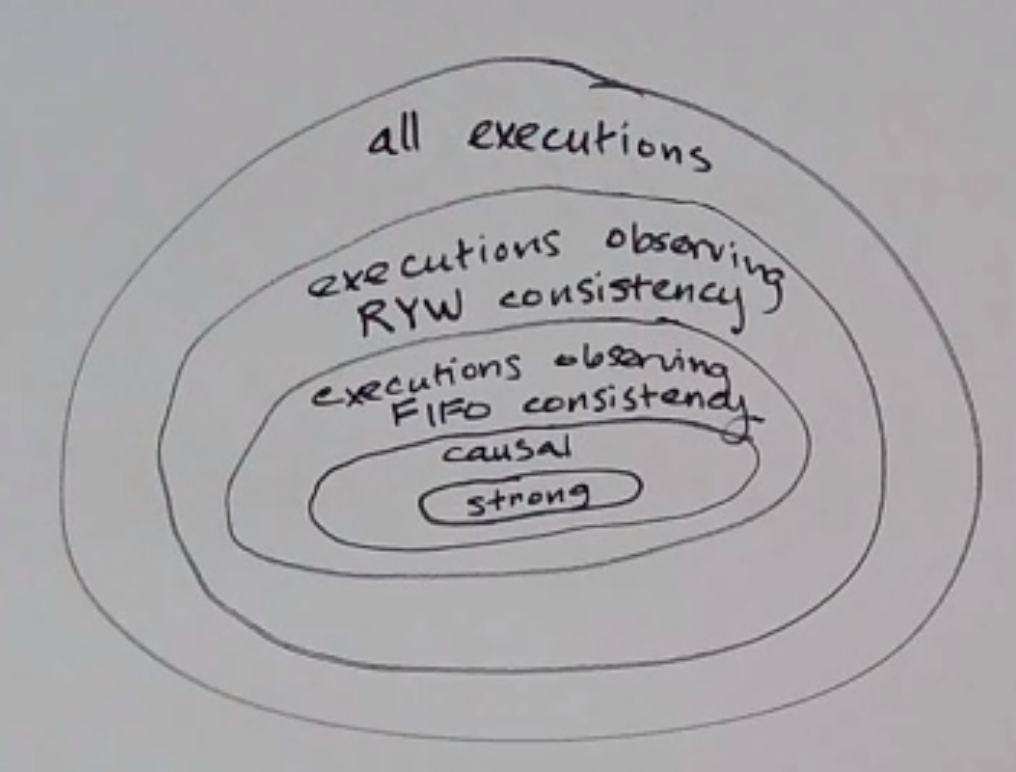 all executions
executions observing
RYW consistency
executions observing
FIFO consistency
causal
strong